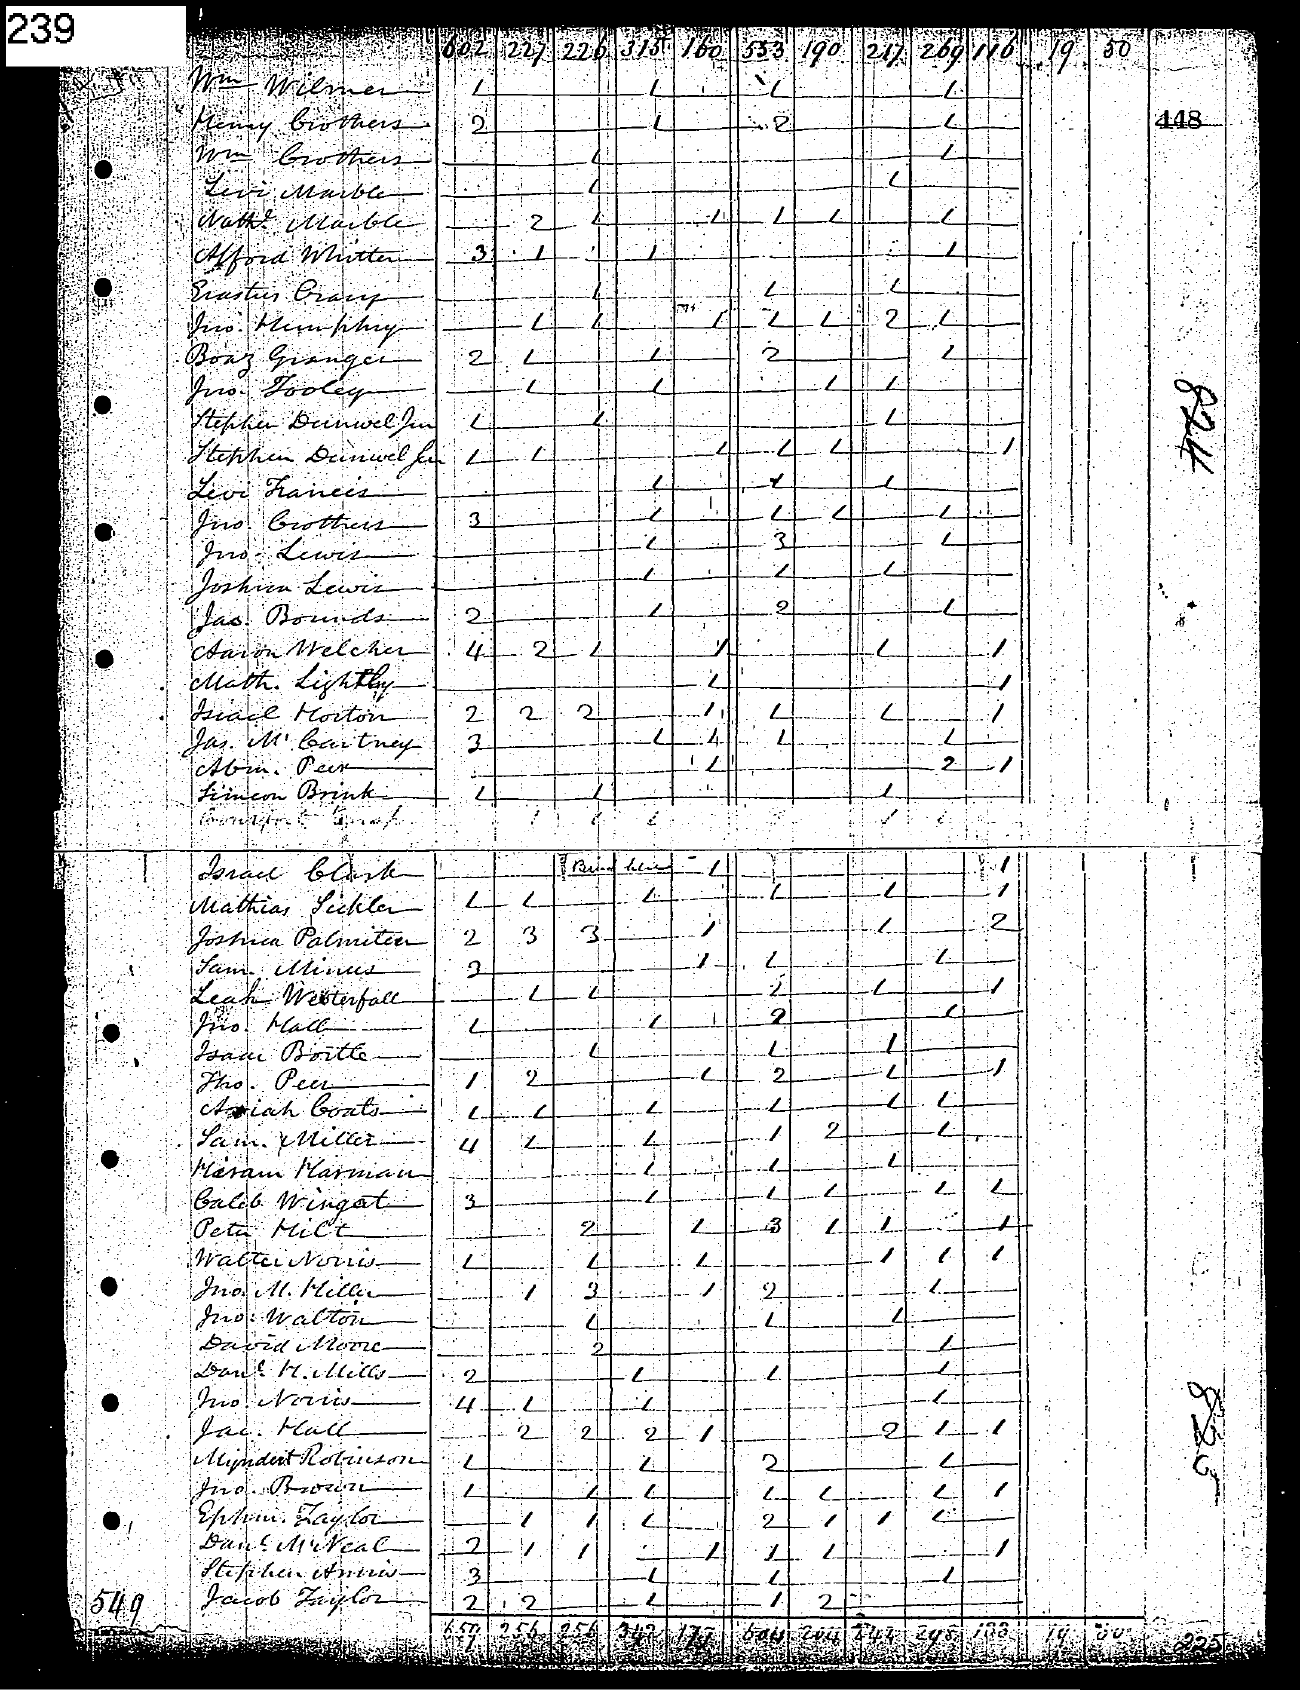 239
602 227 226 315 160 553 190 217 269 116 19 50
Wm Wilmer 1 1 1 1
Henry Crothers 2 1 2 1
448
Wm Crothers 1 1
Levi Marble 1 1
Nathl. Marble 2 1 1 1 1 1
Afford Whitten 3 1 1 1
Erastus Crany 1 1 1
Jno. Humphry 1 1 1 1 1 2 1
Boaz Granger 2 1 1 2 1
Jno. Tooley 1 1 1 1
824
Stephen Dunwel Jun 1 1 1
Stephen Dunwel Sen 1 1 1 1 1 1
Levi Francis 1 1 1
Jno. Crothers 3 1 1 1 1
Jno. Lewis 1 3 1
Joshua Lewis 1 1 1
Jas. Bounds 2 1 2 1
Aaron Welcher 4 2 1 1 1 1
Math. Lightby 1 1
Israel Horton 2 2 2 1 1 1 1
Jas. McCartney 3 1 1 1 1
Abm. Peer 1 2 1
Simeon Brink 1 1 1
Comfort Knap 1 1 1 1 1
Israel Clark 1 1
Mathias Sickler 1 1 1 1 1 1
Joshua Palmiteer 2 3 3 1 1 2
Sam. Minus 3 1 1 1
Leah Westerfall 1 1 2 1 1
Jno. Hall 1 1 2 1
Isaac Bortle 1 1 1
Tho. Peer 1 2 1 2 1 1
Asiah Coats 1 1 1 1 1 1
Sam. Miller 4 1 1 1 2 1
Hiram Harman 1 1 1
Caleb Wingat 3 1 1 1 1 1
Peter Hilt 2 1 3 1 1 1
Walter Norris 1 1 1 1 1 1
Jno. M. Hiller 1 3 1 2 1
Jno. Walton 1 1 1
David Moore 2 1
Danl. H. Mills 2 1 1 1
825
Jno. Norris 4 1 1 1
Jac. Hall 2 2 2 1 2 1 1
Myndert Robinson 1 1 2 1
Jno. Brown 1 1 1 1 1 1 1
Ephm. Taylor 1 1 1 2 1 1 1
Danl. McNeal 2 1 1 1 1 1 1
Stephen Annis 3 1 1 1
549 Jacob Taylor 2 2 1 1 2
256 256 342 177 604 204 242 295 133 19 50
225